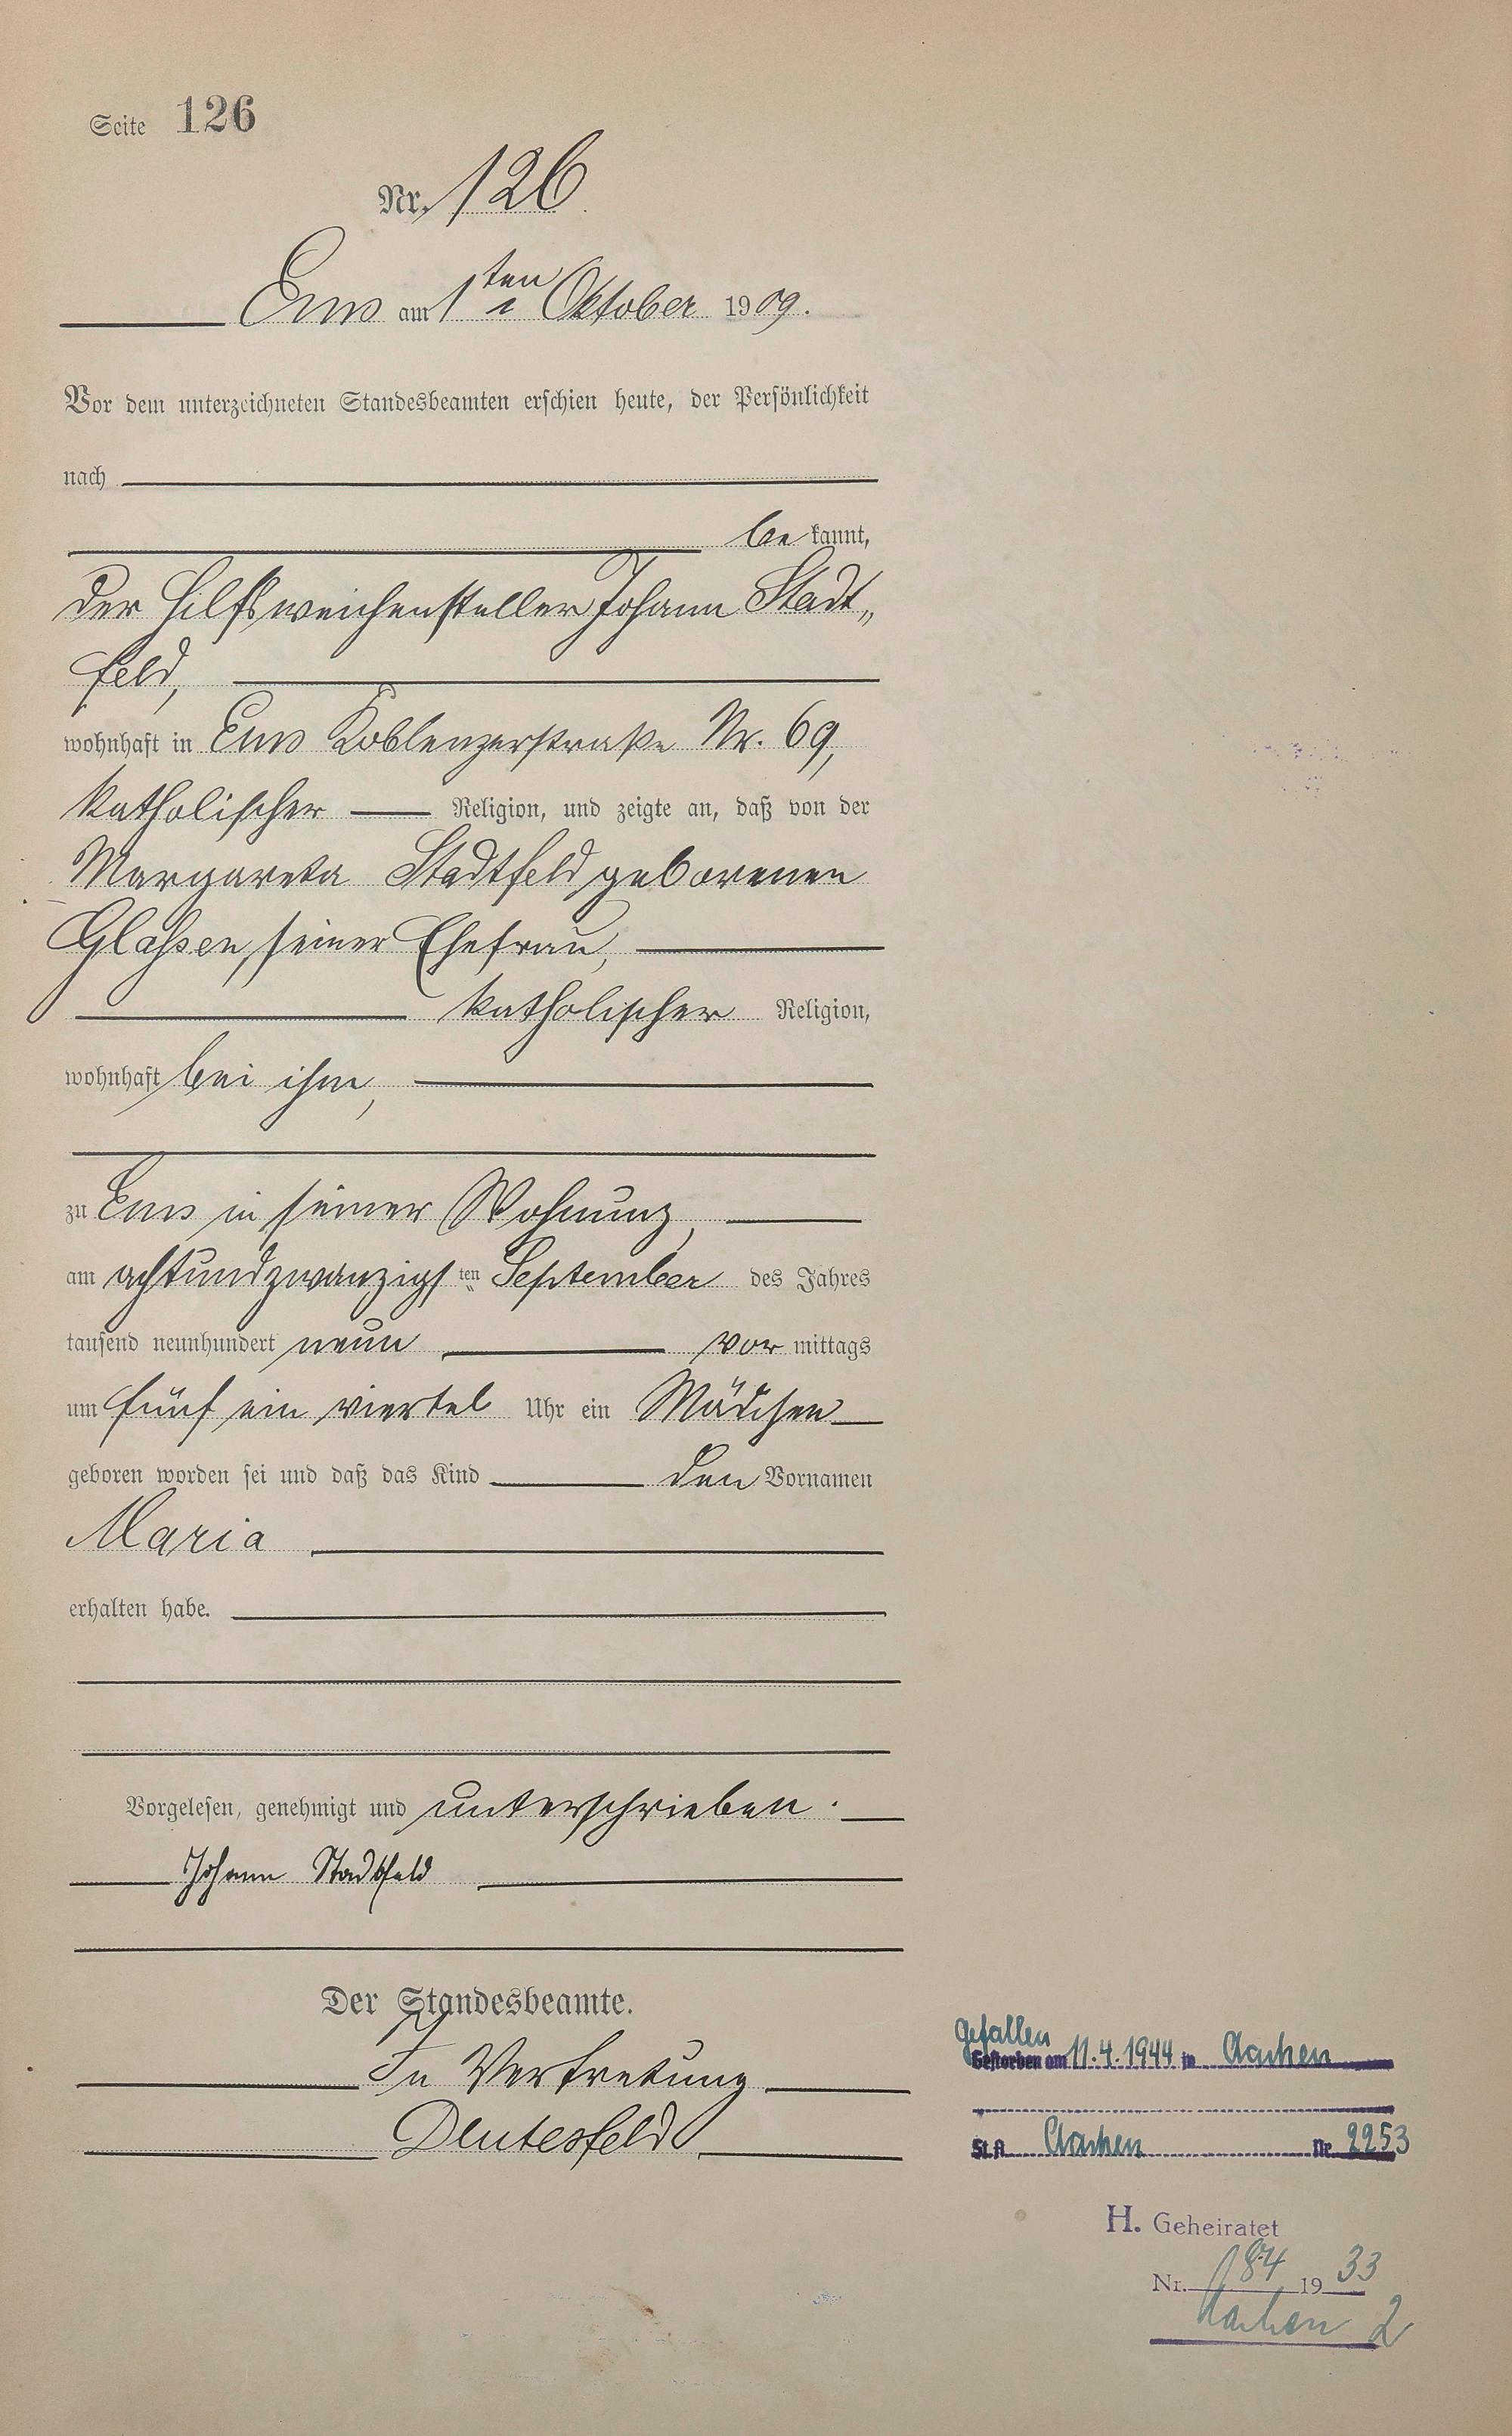 Seite 126
Nr. 126
Ems am 1ten Oktober 1909.
Vor dem unterzeichneten Standesbeamten erschien heute, der Persönlichkeit
nach
be kannt,
der Hilfsweichensteller Johann Stadt„
feld,
wohnhaft in Ems Koblenzerstraße Nr. 69,
katholischer Religion, und zeigte an, daß von der
Margareta Stadtfeld geborenen
Glahsen, seiner Ehefrau,
katholischer Religion,
wohnhaft bei ihm,
zu Ems in seiner Wohnung,
am achtundzwanzigsten September des Jahres
tausend neunhundert neun vor mittags
um fünf ein viertel Uhr ein Mädchen
geboren worden sei und daß das Kind den Vornamen
Maria
erhalten habe.
Vorgelesen, genehmigt und unterschrieben.
Johann Stadtfeld
Der Standesbeamte.
In Vertretung
Deutesfeld
gefallen
Gestorben am 11.4.1944 in Aachen
St.A. Aachen Nr. 2253
H. Geheiratet
Nr. 184 1933
Aachen 2